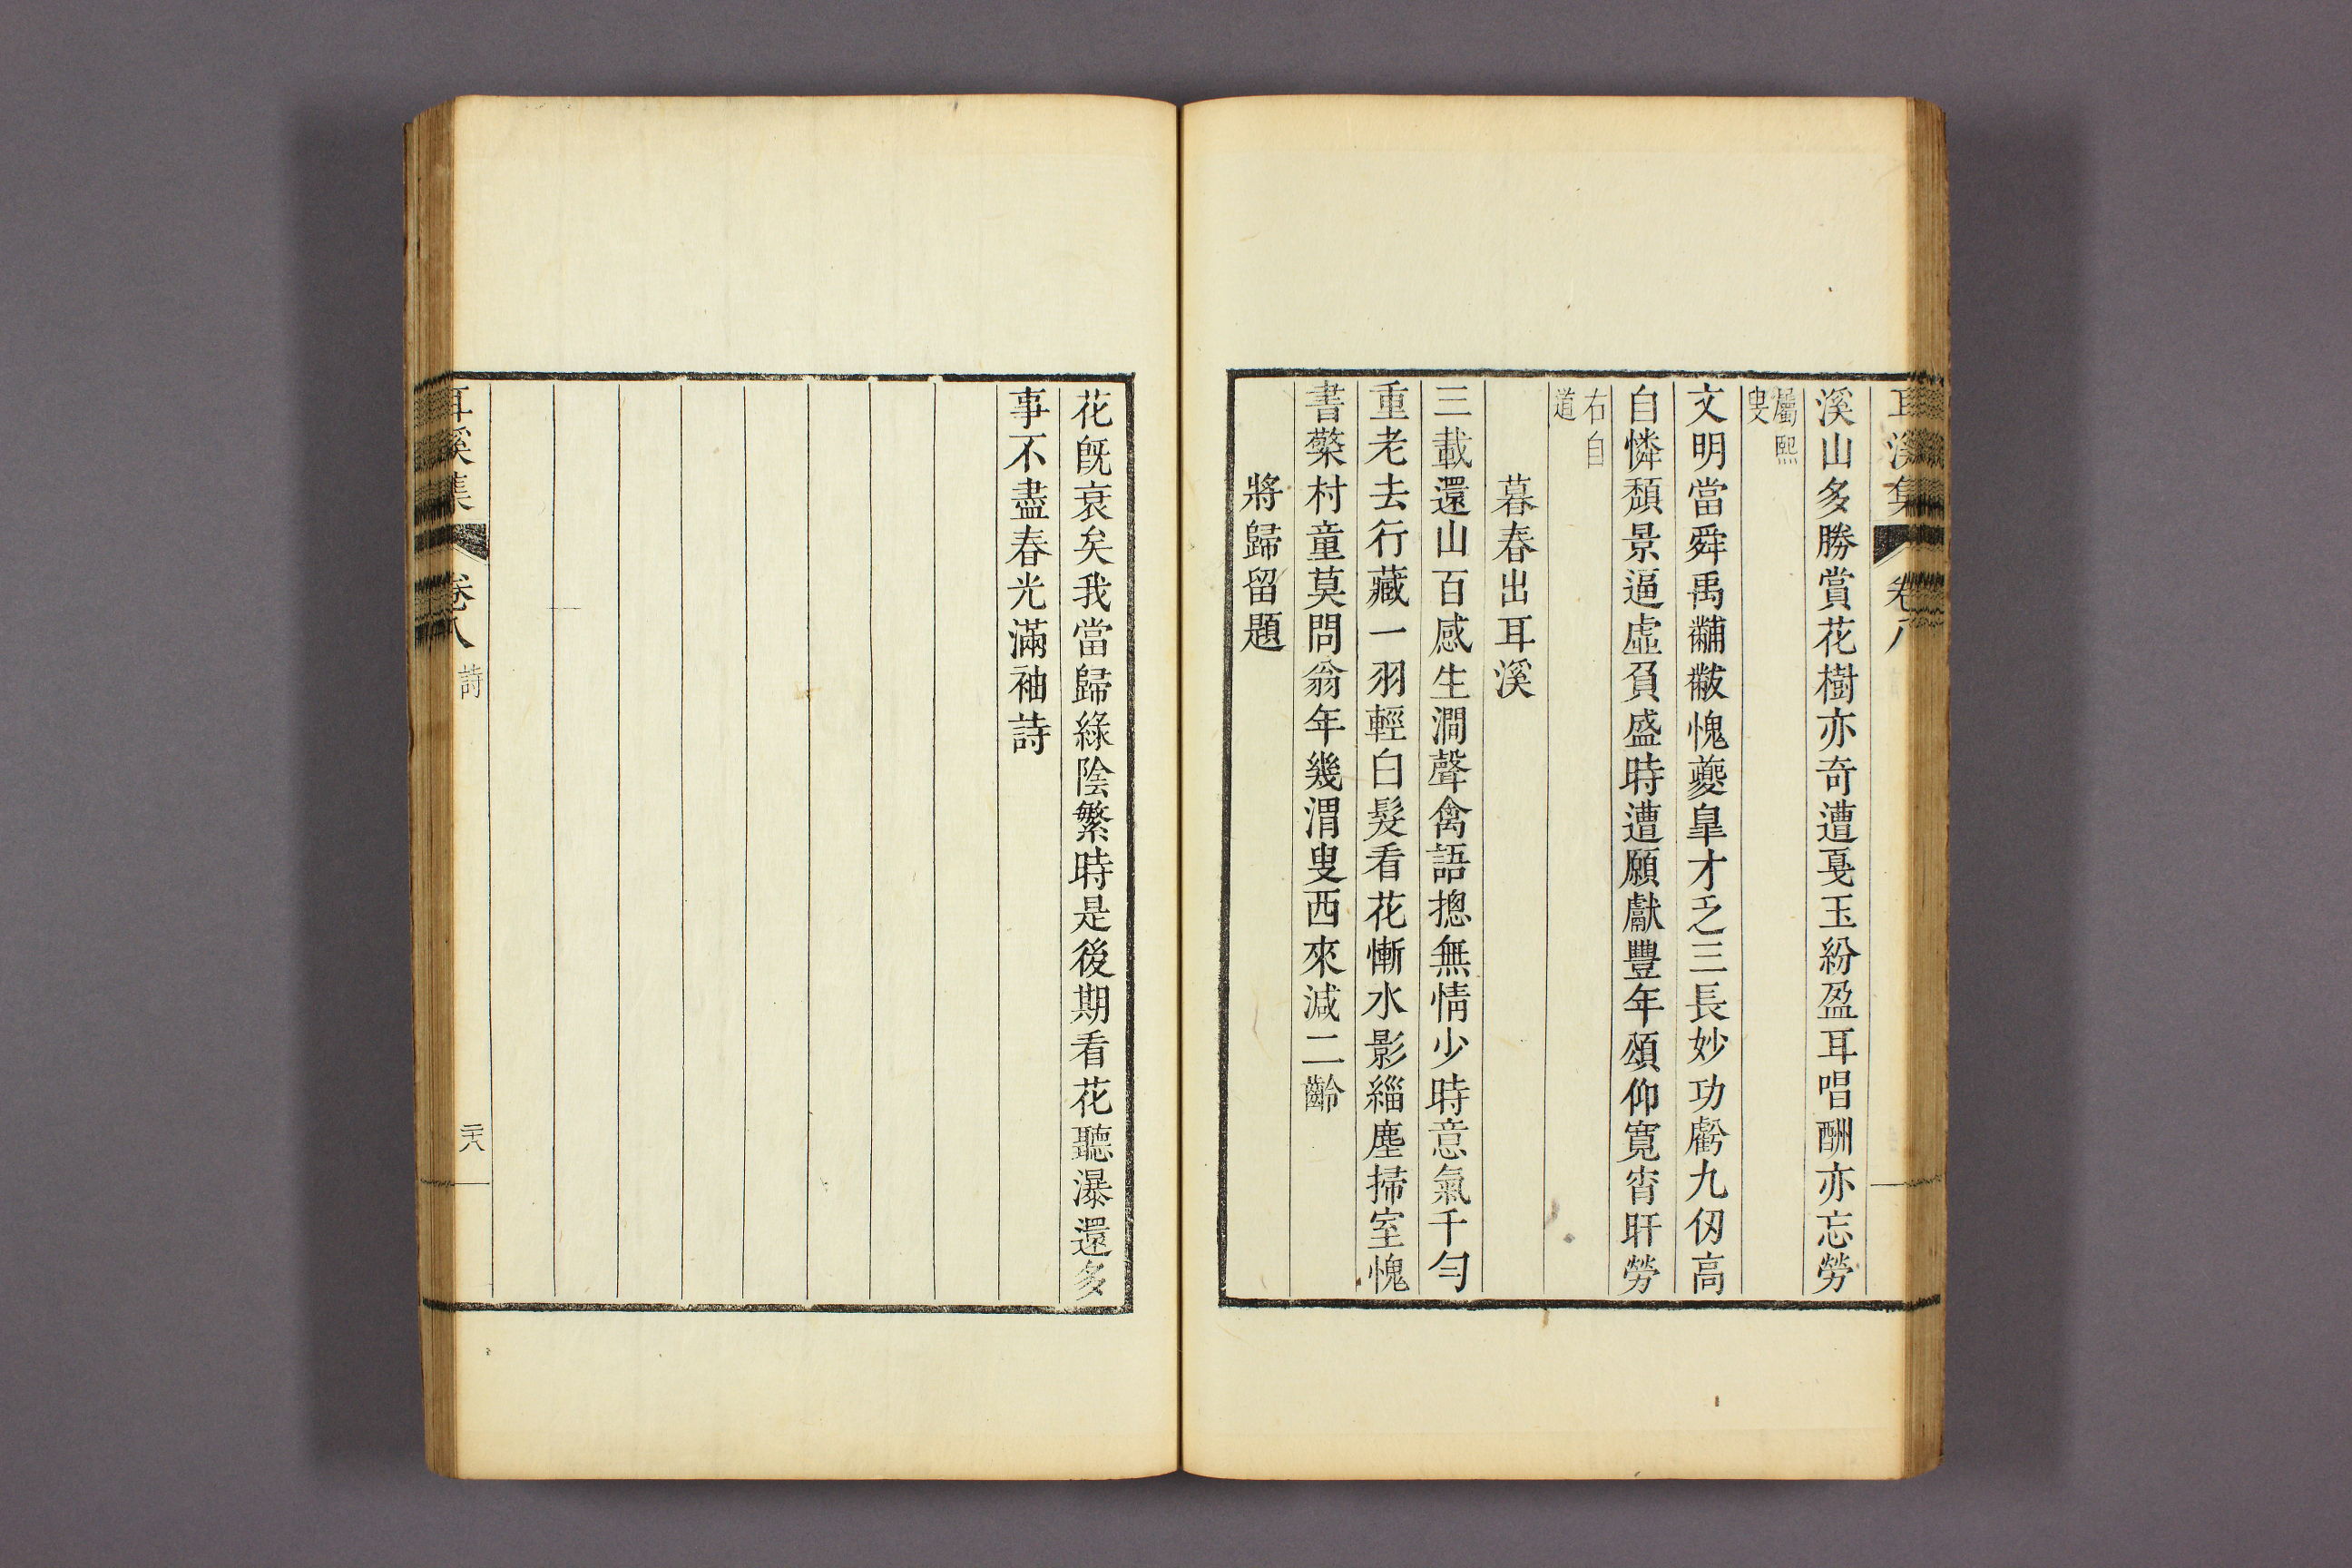 耳溪集 卷八
溪山多勝賞花樹亦奇遭戛玉紛盈耳唱酬亦忘勞
屬熙
叟
文明當舜禹黼黻愧夔皐才乏三長妙功虧九仞高
自憐頹景逼虛負盛時遭願獻豐年頌仰寬宵旰勞
右自
道
暮春出耳溪
三載還山百感生澗聲禽語摠無情少時意氣千勻
重老去行藏一羽輕白髮看花慚水影緇塵掃室愧
書檠村童莫問翁年幾渭叟西來減二齡
將歸留題
花旣衰矣我當歸綠陰繁時是後期看花聽瀑還多
事不盡春光滿袖詩
耳溪集 卷八 詩 二十八